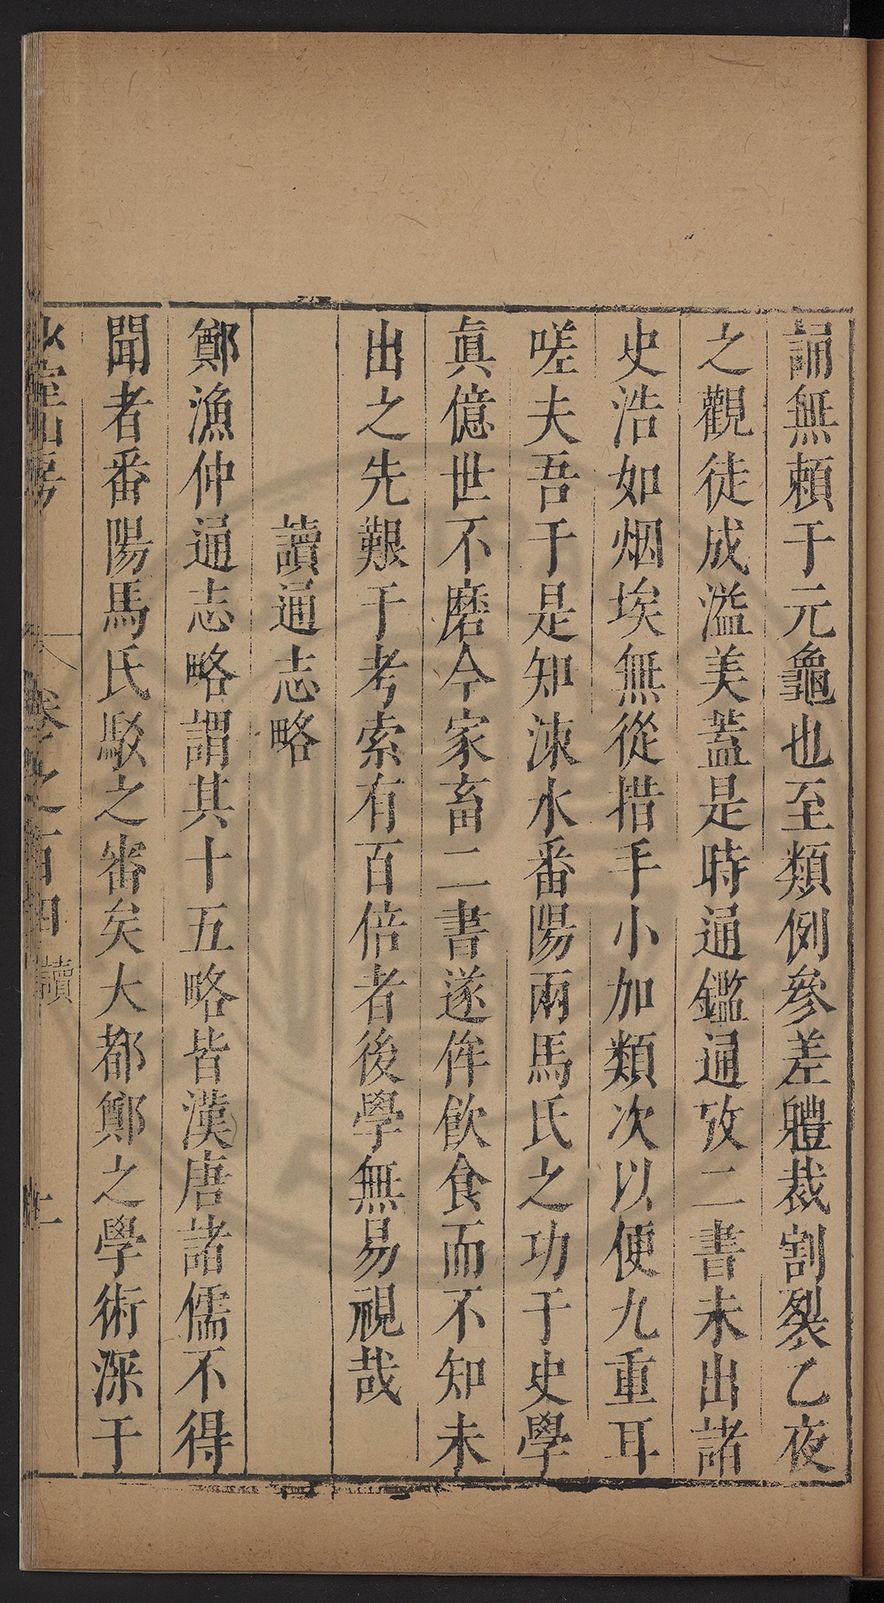 誦無頼于元龜也至類例參差軆裁割裂乙夜
之觀徒成溢美蓋是時通鑑通攷二書未出諸
史浩如烟埃無從措手小加類次以便九重耳
嗟夫吾于是知涑水番陽兩馬氏之功于史學
眞億世不磨今家畜二書遂侔飲食而不知未
出之先艱于考索有百倍者後學無易視哉
讀通志略
鄭漁仲通志略謂其十五略皆漢唐諸儒不得
聞者番陽馬氏駁之審矣大都鄭之學術深于
山房
卷之百
讀